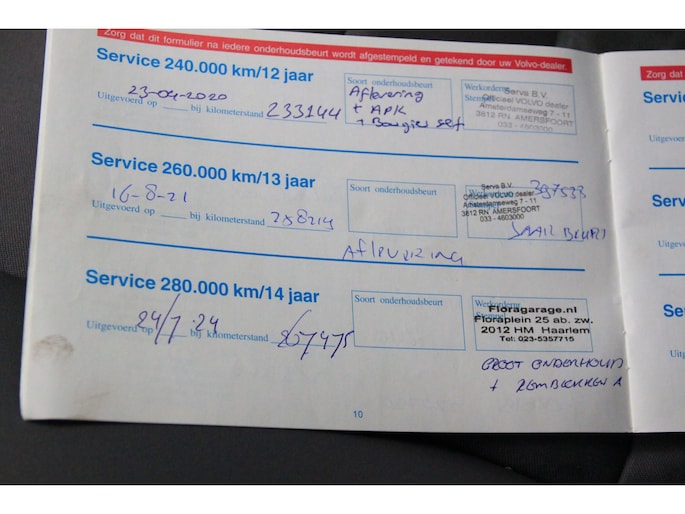 Zorg dat dit formulier na iedere onderhoudsbeurt wordt afgestempeld en getekend door uw Volvo-dealer.
Service 240.000 km/12 jaar
23-04-2020
Uitgevoerd op bij kilometerstand 233144
Soort onderhoudsbeurt
Aflevering
+ APK
+ Bougies set
Werkordernr.
Stempel
Serva B.V.
Officieel VOLVO dealer
Amsterdamseweg 7 - 11
3812 RN AMERSFOORT
033 - 4603000
Service 260.000 km/13 jaar
16-8-21
Uitgevoerd op bij kilometerstand 258214
Soort onderhoudsbeurt
Aflevering
Serva B.V.
Officieel VOLVO dealer
Amsterdamseweg 7 - 11
3812 RN AMERSFOORT
033 - 4603000
Service 280.000 km/14 jaar
24/7 24
Uitgevoerd op bij kilometerstand 267475
Soort onderhoudsbeurt
Werkordernr.
Floragarage.nl
Floraplein 25 ab. zw.
2012 HM Haarlem
Tel: 023-5357715
GROOT ONDERHOUD
+ REMBLOKKEN A
10
Zorg dat
Servic
Uitgevoerd
Servi
Uitgevoer
Se
Uitg